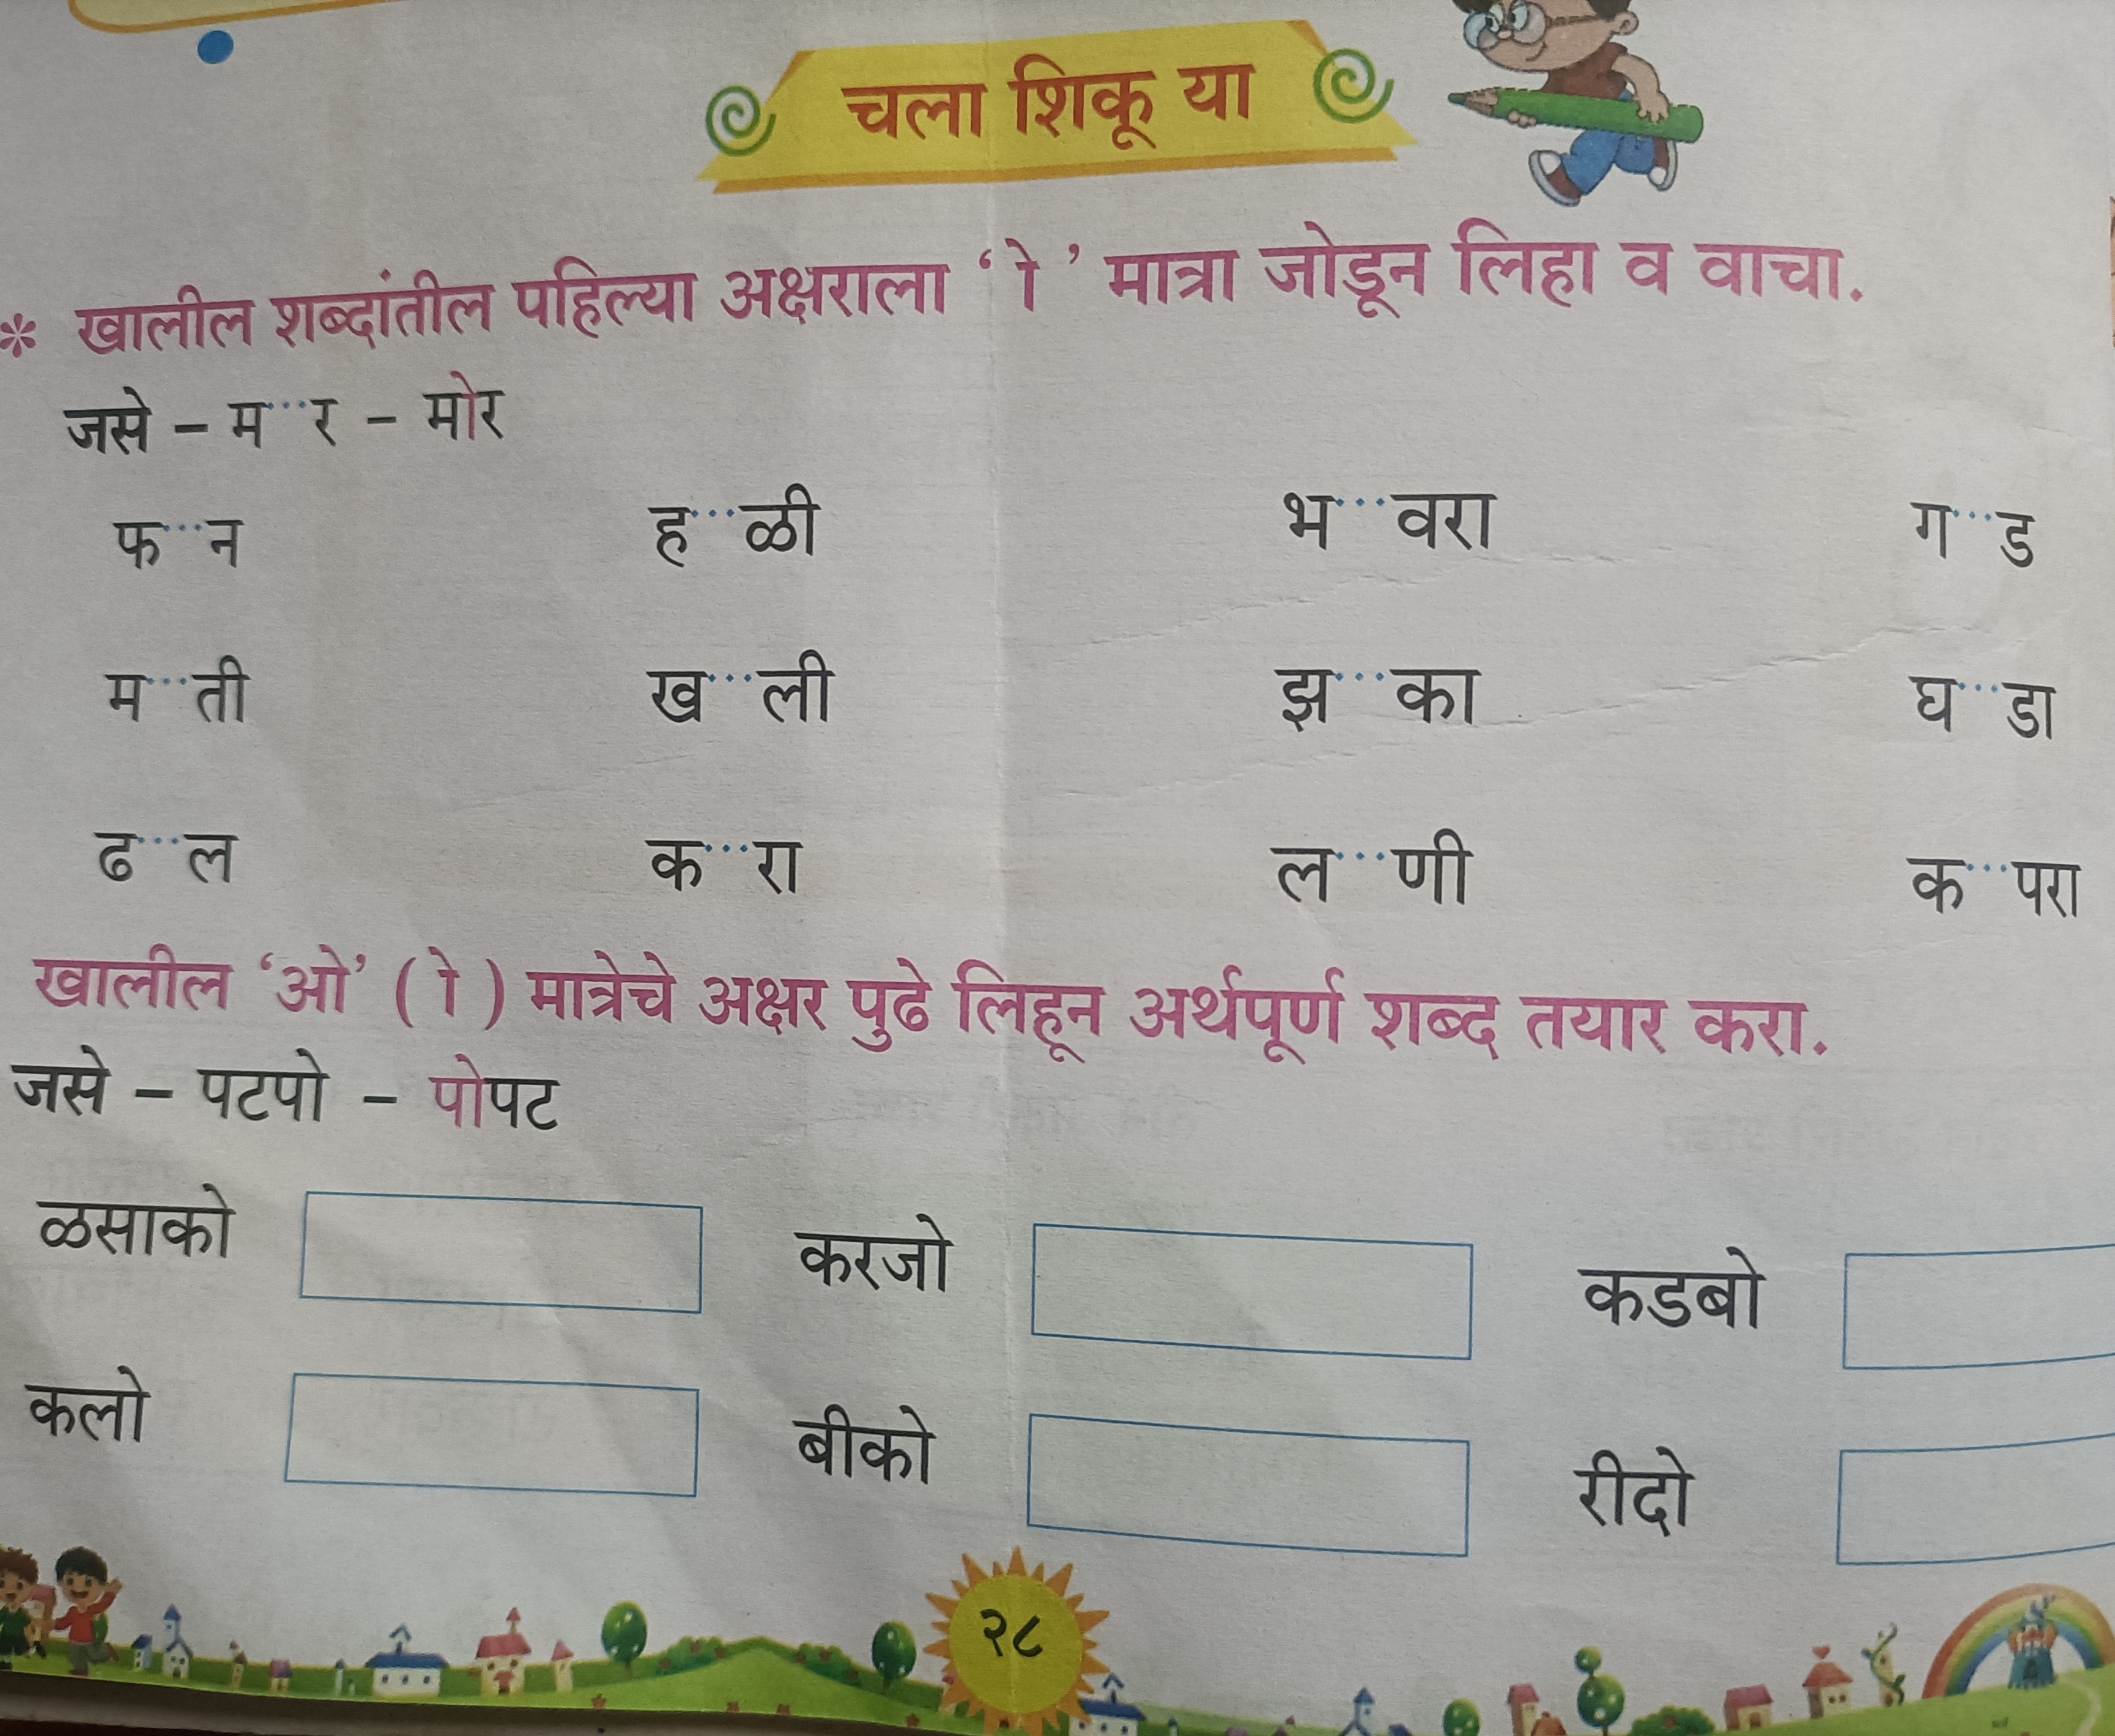 चला शिकू या
* खालील शब्दांतील पहिल्या अक्षराला ‘ ो ’ मात्रा जोडून लिहा व वाचा.
जसे – म...र – मोर
फ...न ह...ळी भ...वरा ग...ड
म...ती ख...ली झ...का घ...डा
ढ...ल क...रा ल...णी क...परा
खालील ‘ओ’ ( ो ) मात्रेचे अक्षर पुढे लिहून अर्थपूर्ण शब्द तयार करा.
जसे – पटपो – पोपट
ळसाको करजो कडबो
कलो बीको रीदो
२८